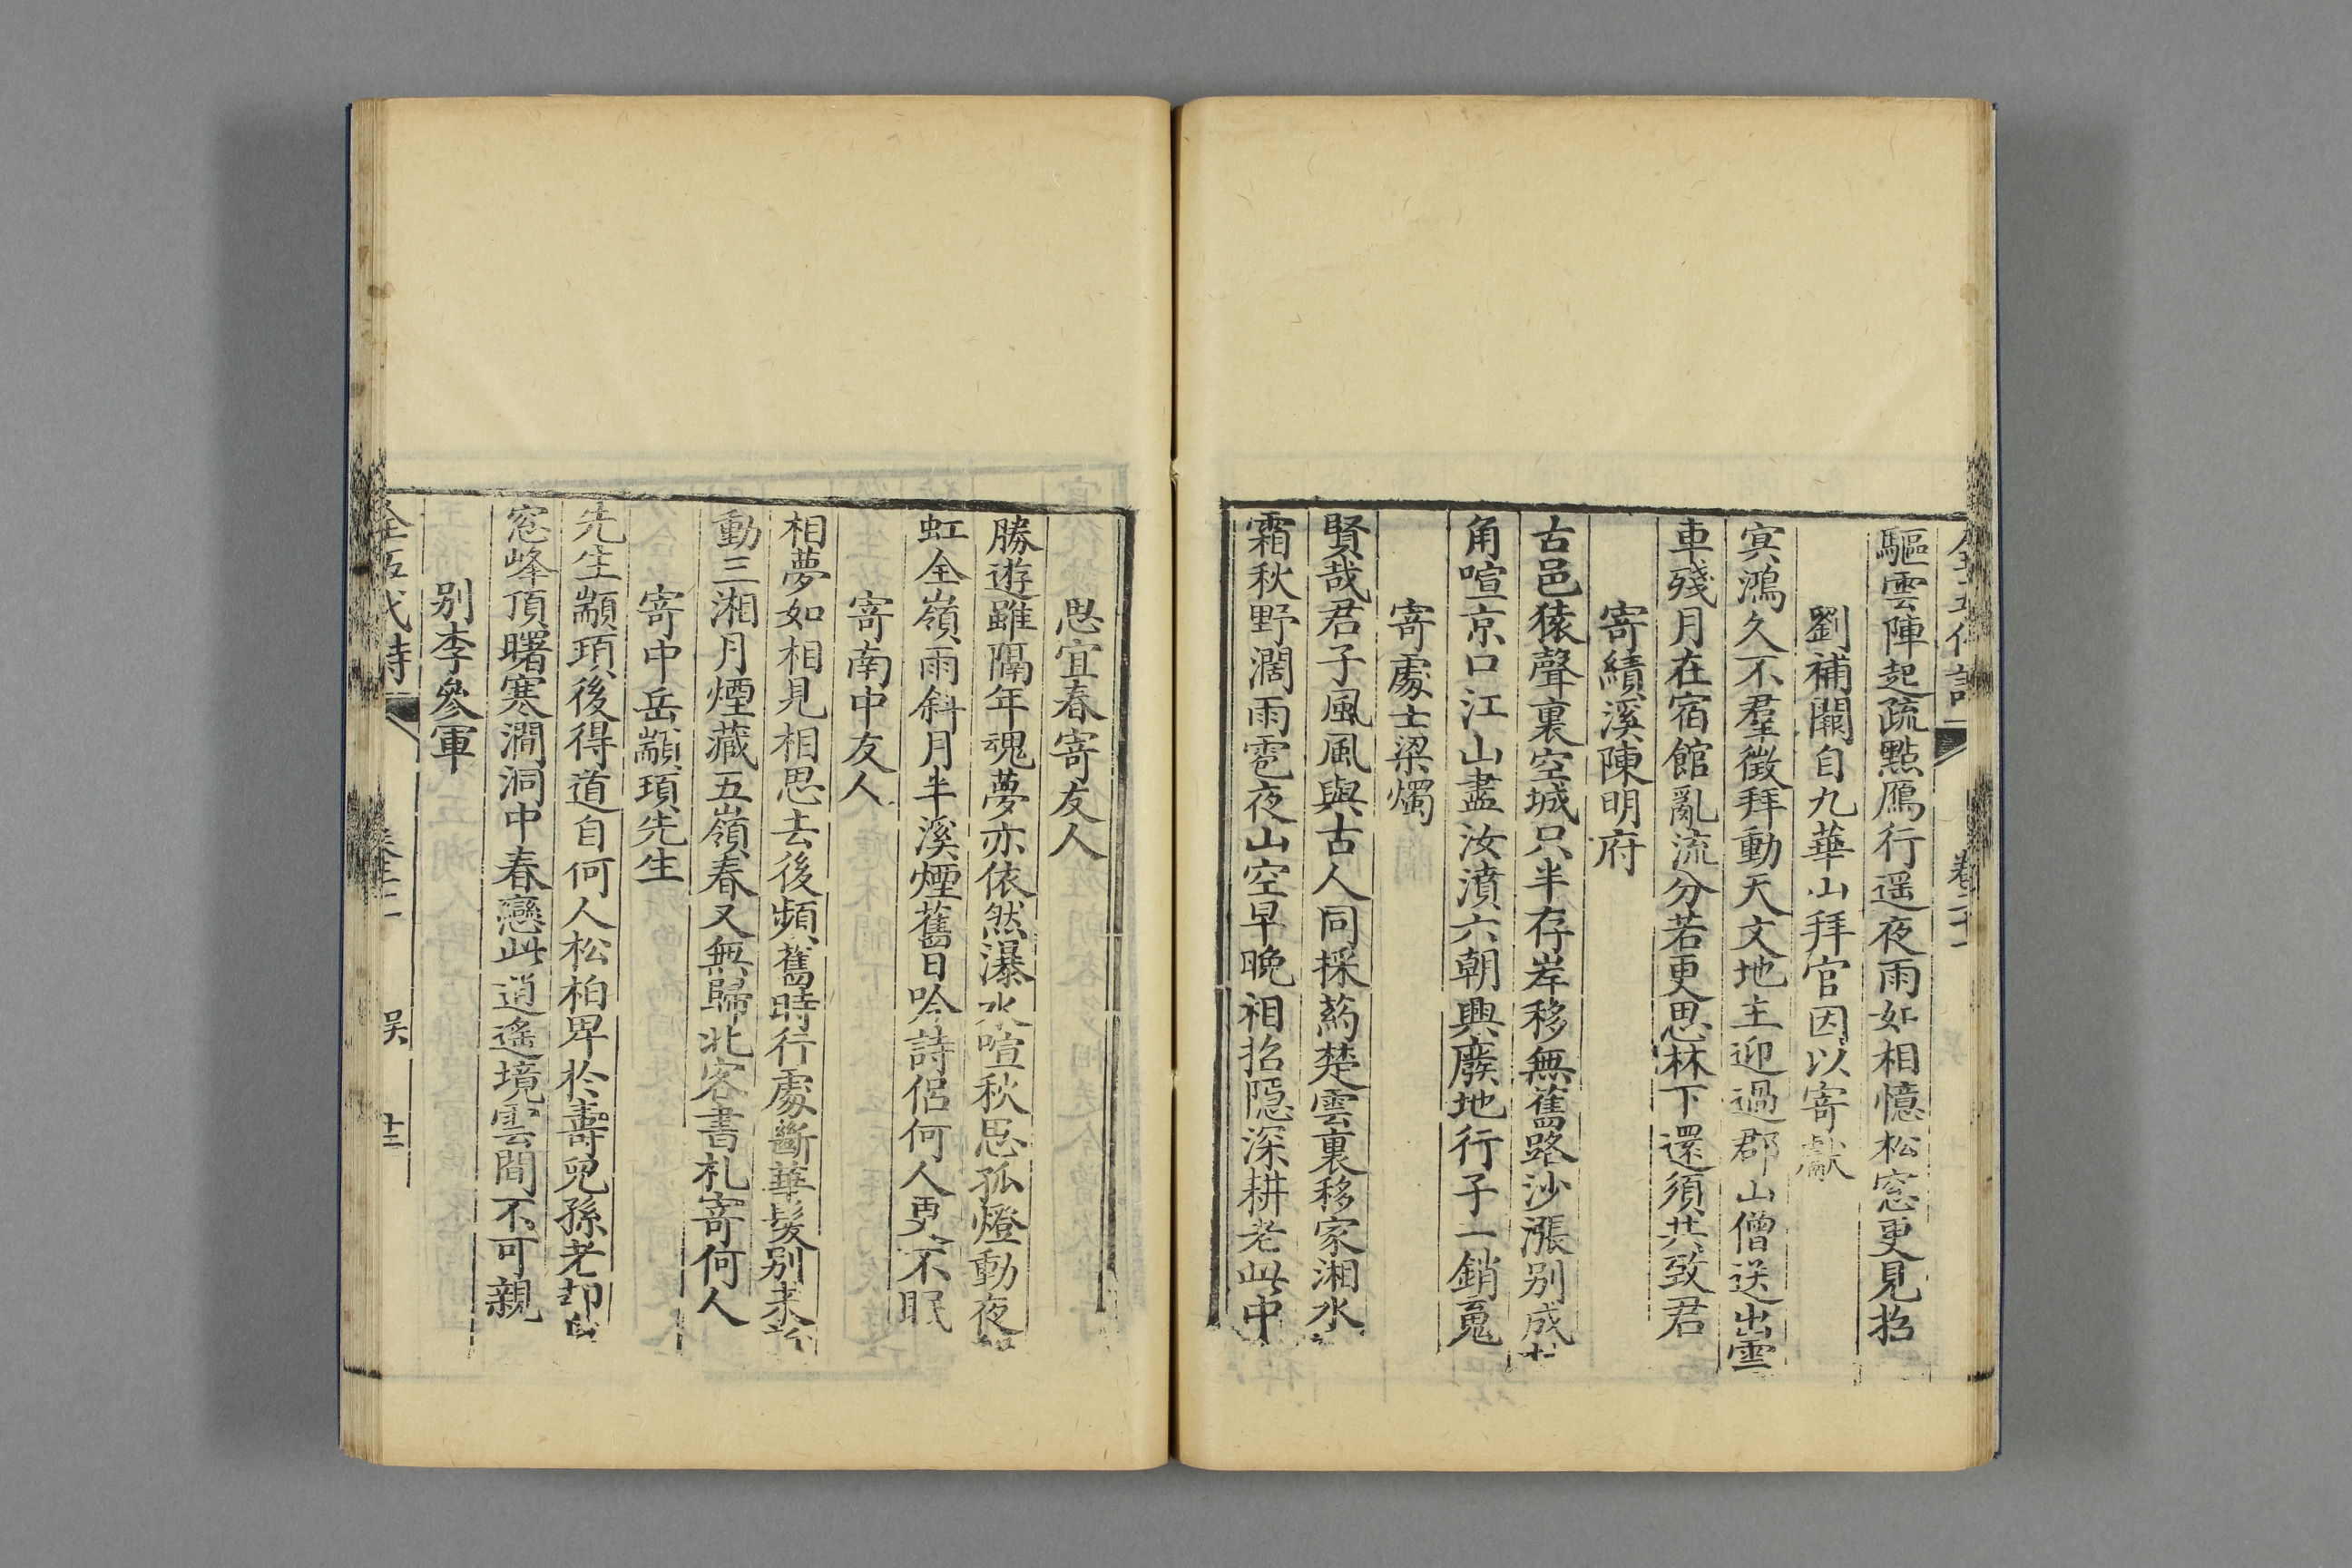 驅雲陣起疏點鴈行遥夜雨如相憶松窓更見招
劉補闕自九華山拜官因以寄獻
㝠鴻久不羣徵拜動天文地主迎過郡山僧送出雲
車殘月在宿館亂流分若更思林下還須共致君
寄績溪陳明府
古邑猿聲裏空城只半存岸移無舊路沙漲别成
角喧京口江山盡汝濆六朝興廢地行子一銷䰟
寄處士梁燭
賢哉君子風風與古人同採葯楚雲裏移家湘水
霜秋野濶雨雹夜山空早晚相招隠深耕老此中
思宜春寄友人
勝遊雖隔年魂夢亦依然瀑水喧秋思孤燈動夜
虹全嶺雨斜月半溪煙舊日吟詩侣何人更不眠
寄南中友人
相夢如相見相思去後頻舊時行處斷華髪别来
動三湘月煙藏五嶺春又無歸北客書札寄何人
寄中岳顓頊先生
先生顓頊後得道自何人松柏卑於壽兒孫老却
窓峰頂曙寒澗洞中春戀此逍遥境雲間不可親
别李參軍
全五代詩